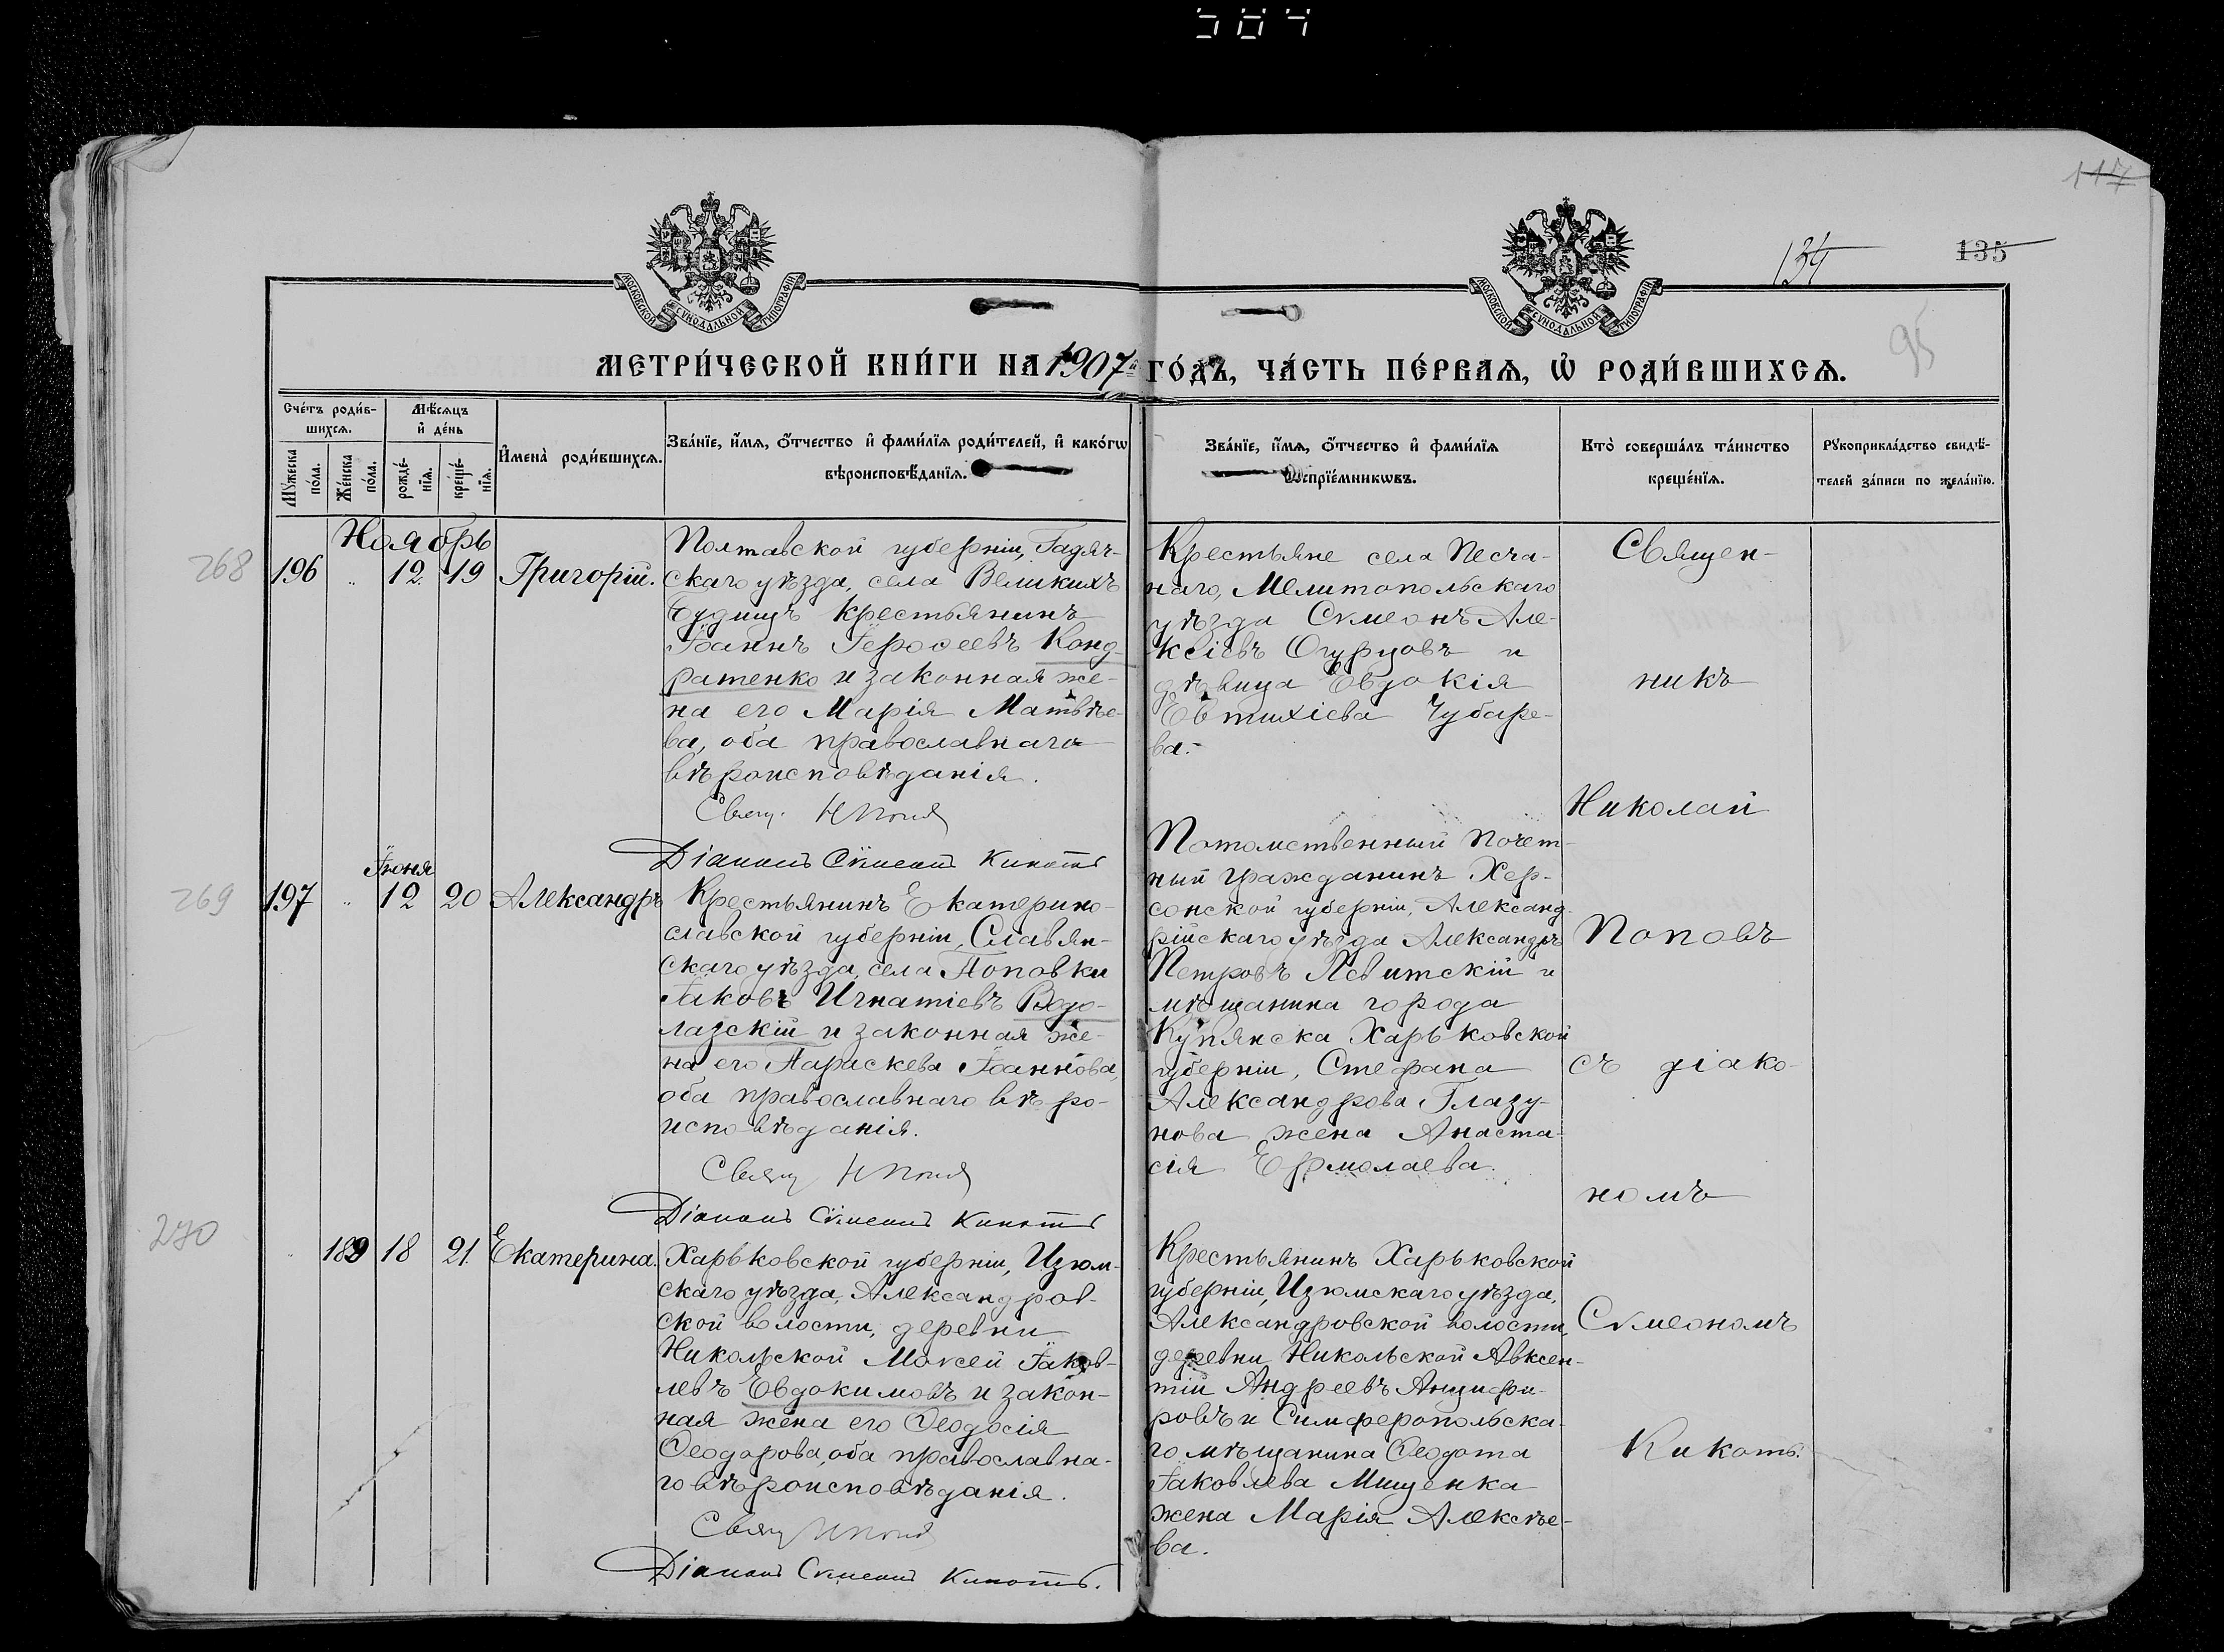 504
117
134
135
95
МОСКОВСКОЙ СУНОДАЛЬНОЙ ТИПОГРАФІИ
МОСКОВСКОЙ СУНОДАЛЬНОЙ ТИПОГРАФІИ
МЕТРИ́ЧЕСКОЙ КНИ́ГИ НА 1907й ГО́ДЪ, ЧА́СТЬ ПЕ́РВАѦ, Ѽ РОДИ́ВШИХСѦ.
Сче́тъ роди́в-
шихсѧ.
Мꙋ́жеска по́ла.
Же́нска по́ла.
Мѣ́сѧцъ
и҆ де́нь
рожде́-нїѧ.
креще́-нїѧ.
И҆мена̀ роди́вшихсѧ.
Зва́нїе, и҆́мѧ, ѻ҆́тчество и҆ фами́лїѧ роди́телей, и҆ како́гѡ
вѣроисповѣ́данїѧ.
Зва́нїе, и҆́мѧ, ѻ҆́тчество и҆ фами́лїѧ
воспрїе́мникѡвъ.
Кто̀ соверша́лъ та́инство
креще́нїѧ.
Рꙋкоприкла́дство свидѣ́-
телей за́писи по жела́нїю.
Ноябрь
268 196 " 12 19 Григорій.
Полтавской губерніи, Гадяч-
скаго уѣзда, села Великихъ
Будищъ крестьянинъ
Іоаннъ Іеросеевъ Конд-
ратенко и законная же-
на его Марія Матвѣе-
ва, оба православнаго
вѣроисповѣданія.
Свящ. Н Попов
Діаконъ Сѵмеонъ Кикоть
Крестьяне села Песча-
наго, Мелитопольскаго
уѣзда Сѵмеонъ Але-
ксіевъ Огурцовъ и
дѣвица Евдокія
Евтихіева Чубаре-
ва.-
Священ-
никъ
Николай
Поповъ
съ діако-
номъ
Сѵмеономъ
Кикоть.
Іюня
269 197 " 12 20 Александръ
Крестьянинъ Екатерино-
славской губерніи, Славян-
скаго уѣзда, села Поповки
Іаковъ Игнатіевъ Водо-
лазскій и законная же-
на его Параскева Іоаннова,
оба православнаго вѣро-
исповѣданія.
Свящ Н Попов
Діаконъ Сѵмеонъ Кикоть
Потомственный Почет-
ный гражданинъ Хер-
сонской губерніи, Александ-
рійскаго уѣзда Александръ
Петровъ Левитскій и
мѣщанина города
Купянска Харьковской
губерніи, Стефана
Александрова Глазу-
нова жена Анаста-
сія Ермолаева.
270 " 189 18 21. Екатерина.
Харьковской губерніи, Изюм-
скаго уѣзда, Александров-
ской волости, деревни
Никольской Моѵсей Іаков-
левъ Евдокимовъ и закон-
ная жена его Ѳеодосія
Ѳеодорова, оба православна-
го вѣроисповѣданія.
Свящ Н Попов
Діаконъ Сѵмеонъ Кикоть.
Крестьянинъ Харьковской
губерніи, Изюмскаго уѣзда,
Александровской волости,
деревни Никольской Авксен-
тій Андреевъ Анцифи-
ровъ и Симферопольска-
го мѣщанина Ѳеодота
Іаковлева Мищенка
жена Марія Алексѣе-
ва.